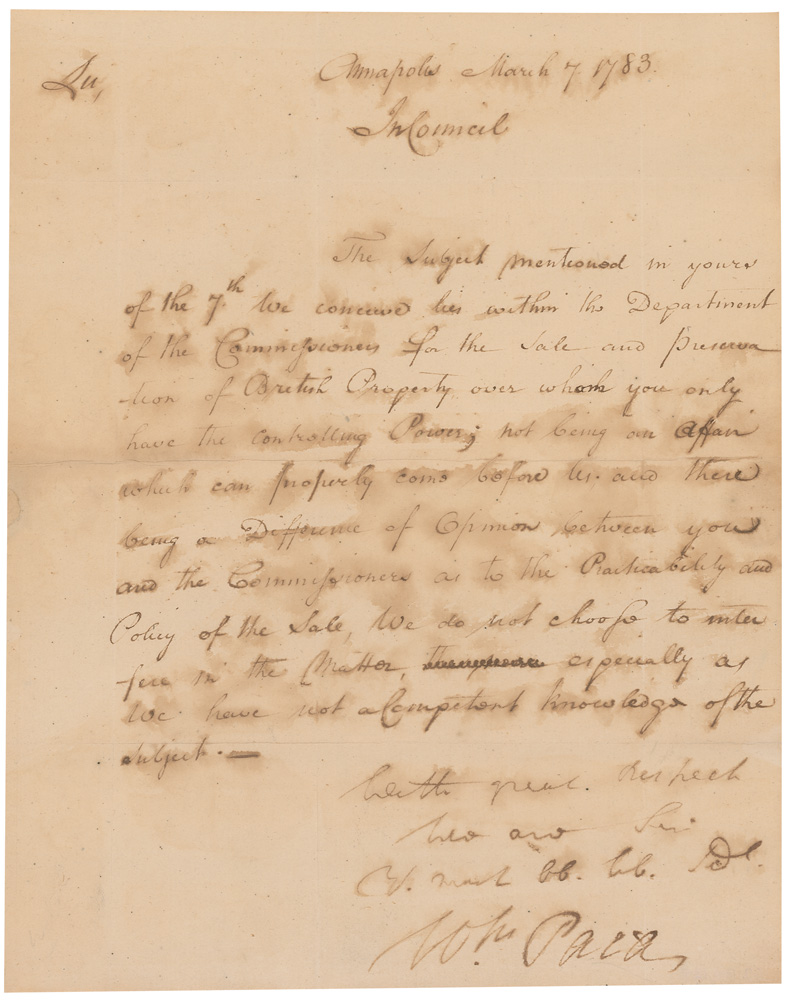 Sir,
Annapolis March 7 1783.
In Council
The Subject mentioned in yours
of the 7th We conceive lies within the Department
of the Commissioners for the Sale and preserva
tion of British Property over whom you only
have the controlling Power; not being an Affair
which can properly come before Us. and there
being a Difference of Opinion between you
and the Commissioners as to the Practicability and
Policy of the Sale, We do not choose to inter
fere in the Matter, especially as
We have not a Competent knowledge of the
subject. —
With great. Respect
We are Sir
Yr. most ob. hb. Sts.
Wm. Paca